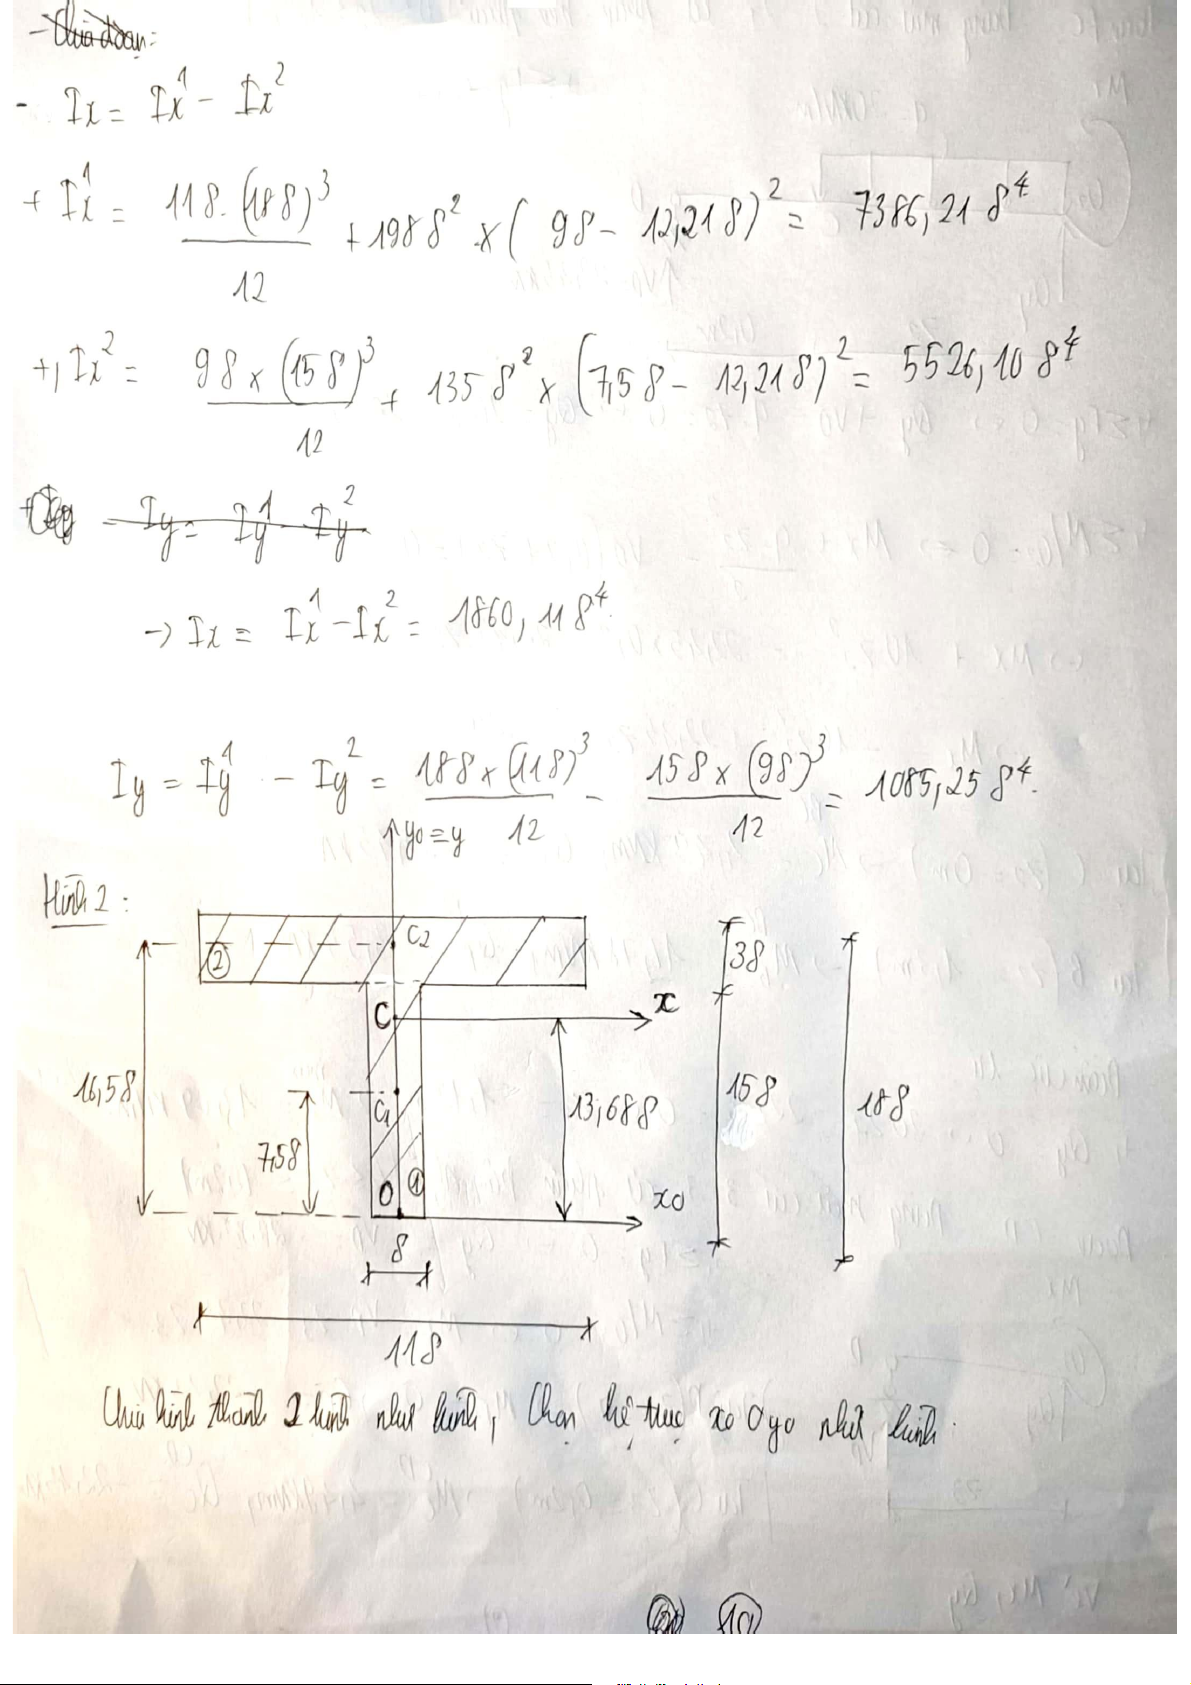 - Ix = Ix¹ - Ix²
+ Ix¹ = 11δ.(18δ)³/12 + 198δ² x (9δ - 12,21δ)² = 7386,21δ⁴
+, Ix² = 9δ x (15δ)³/12 + 135δ² x (7,5δ - 12,21δ)² = 5526,10δ⁴
- Iy = Iy¹ - Iy²
-> Ix = Ix¹ - Ix² = 1860,11δ⁴.
Iy = Iy¹ - Iy² = 18δ x (11δ)³/12 - 15δ x (9δ)³/12 = 1085,25δ⁴.
y0 ≡ y
Hình 2 :
C2
②
3δ
C
x
16,5δ
C1
13,68δ
15δ
18δ
7,5δ
O
①
x0
δ
11δ
Chia hình thành 2 hình như hình, Chọn hệ trục x0Oy0 như hình.
10